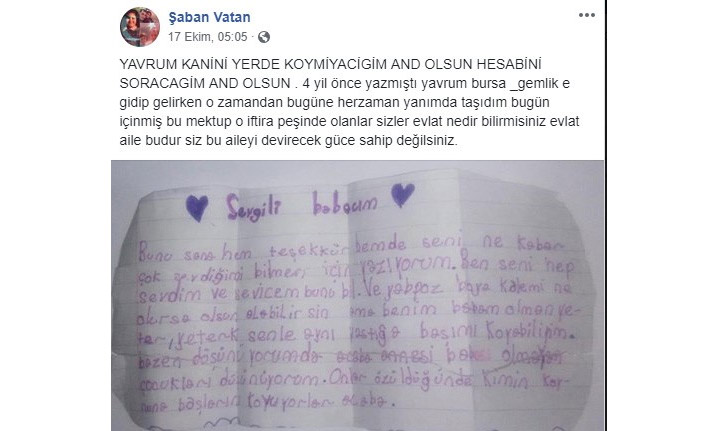 Şaban Vatan
17 Ekim, 05:05 ·
YAVRUM KANİNİ YERDE KOYMİYACİGİM AND OLSUN HESABİNİ
SORACAGİM AND OLSUN . 4 yil önce yazmıştı yavrum bursa _gemlik e
gidip gelirken o zamandan bugüne herzaman yanımda taşıdım bugün
içinmiş bu mektup o iftira peşinde olanlar sizler evlat nedir bilirmisiniz evlat
aile budur siz bu aileyi devirecek güce sahip değilsiniz.
Sevgili babacım
Bunu sana hem teşekkür hemde seni ne kadar
çok sevdiğimi bilmen için yazıyorum. Ben seni hep
sevdim ve sevicem bunu bil. Ve yapboz boya kalemi ne
olursa olsun alabilirsin ama benim babam olman ye-
ter, yeterki senle aynı yastığa başımı koyabilim.
bazen düşünüyorumda acaba annesi babası olmayan
çocukları düşünüyorum. Onlar üzüldüğünde kimin koy-
nuna başlarını koyuyorlar acaba.